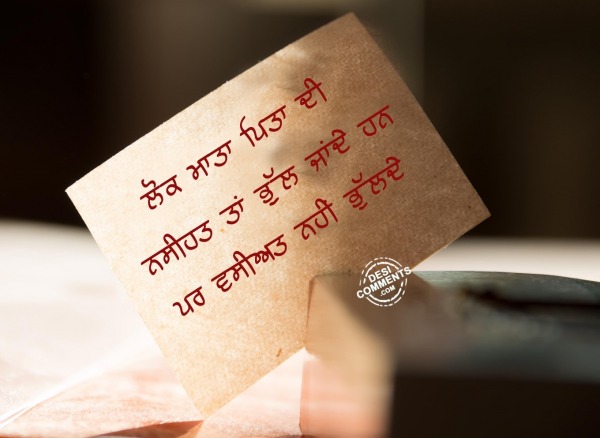 ਲੋਕ ਮਾਤਾ ਪਿਤਾ ਦੀ
ਨਸੀਹਤ ਤਾਂ ਭੁੱਲ ਜਾਂਦੇ ਹਨ
ਪਰ ਵਸੀਅਤ ਨਹੀ ਭੁੱਲਦੇ
DESI
COMMENTS
.COM